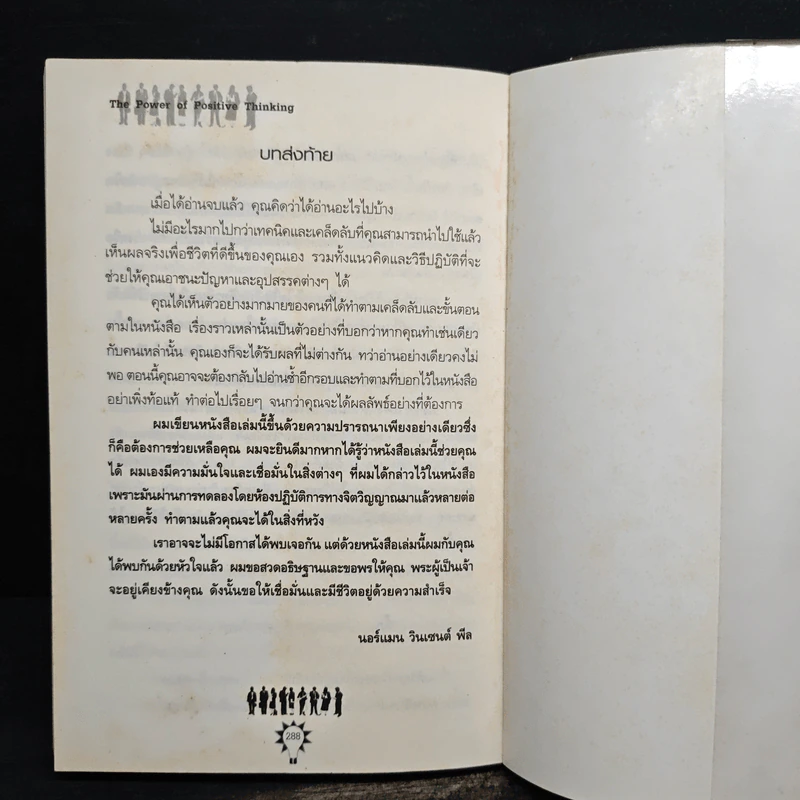 The Power of Positive Thinking
บทส่งท้าย
เมื่อได้อ่านจบแล้ว คุณคิดว่าได้อ่านอะไรไปบ้าง
ไม่มีอะไรมากไปกว่าเทคนิคและเคล็ดลับที่คุณสามารถนำไปใช้แล้ว
เห็นผลจริงเพื่อชีวิตที่ดีขึ้นของคุณเอง รวมทั้งแนวคิดและวิธีปฏิบัติที่จะ
ช่วยให้คุณเอาชนะปัญหาและอุปสรรคต่างๆ ได้
คุณได้เห็นตัวอย่างมากมายของคนที่ได้ทำตามเคล็ดลับและขั้นตอน
ตามในหนังสือ เรื่องราวเหล่านั้นเป็นตัวอย่างที่บอกว่าหากคุณทำเช่นเดียว
กับคนเหล่านั้น คุณเองก็จะได้รับผลที่ไม่ต่างกัน ทว่าอ่านอย่างเดียวคงไม่
พอ ตอนนี้คุณอาจจะต้องกลับไปอ่านซ้ำอีกรอบและทำตามที่บอกไว้ในหนังสือ
อย่าเพิ่งท้อแท้ ทำต่อไปเรื่อยๆ จนกว่าคุณจะได้ผลลัพธ์อย่างที่ต้องการ
ผมเขียนหนังสือเล่มนี้ขึ้นด้วยความปรารถนาเพียงอย่างเดียวซึ่ง
ก็คือต้องการช่วยเหลือคุณ ผมจะยินดีมากหากได้รู้ว่าหนังสือเล่มนี้ช่วยคุณ
ได้ ผมเองมีความมั่นใจและเชื่อมั่นในสิ่งต่างๆ ที่ผมได้กล่าวไว้ในหนังสือ
เพราะมันผ่านการทดลองโดยห้องปฏิบัติการทางจิตวิญญาณมาแล้วหลายต่อ
หลายครั้ง ทำตามแล้วคุณจะได้ในสิ่งที่หวัง
เราอาจจะไม่มีโอกาสได้พบเจอกัน แต่ด้วยหนังสือเล่มนี้ผมกับคุณ
ได้พบกันด้วยหัวใจแล้ว ผมขอสวดอธิษฐานและขอพรให้คุณ พระผู้เป็นเจ้า
จะอยู่เคียงข้างคุณ ดังนั้นขอให้เชื่อมั่นและมีชีวิตอยู่ด้วยความสำเร็จ
นอร์แมน วินเซนต์ พีล
288